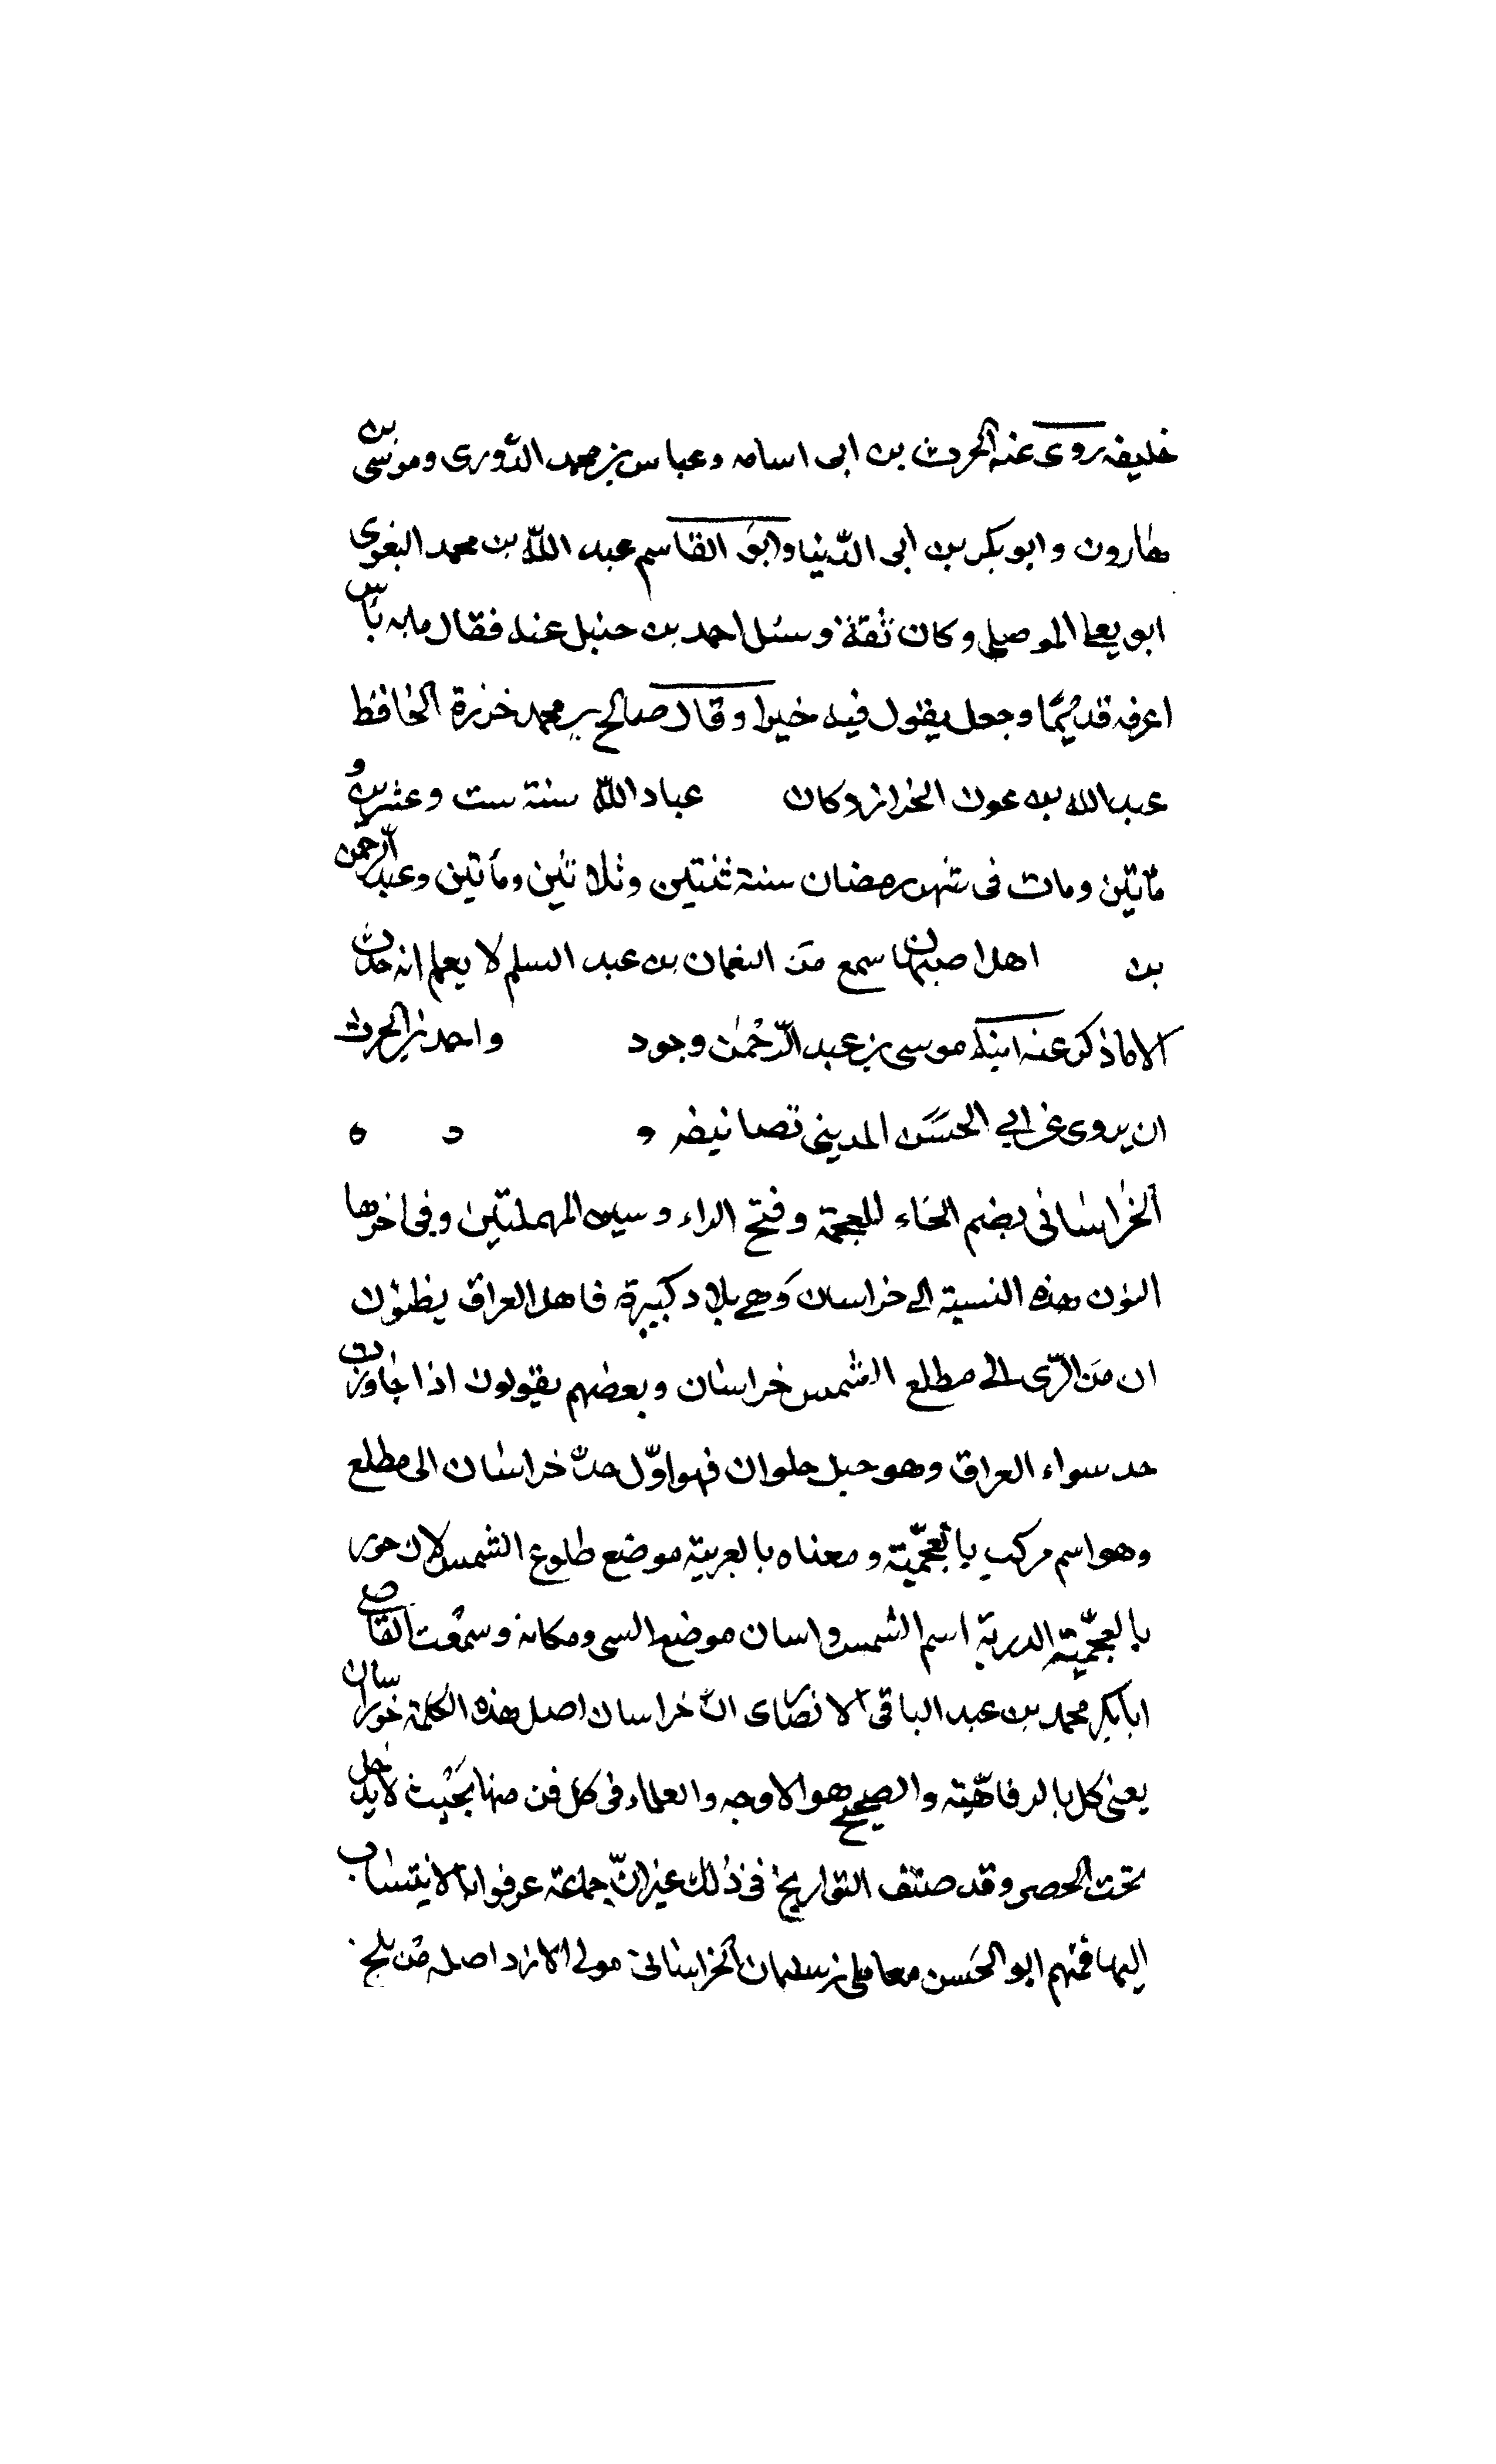 خليفه روى عنه الحرث بن ابى اسامه وعباس بن محمد الدّورى وموسى بن
هارون وابو بكر بن أبى الدّنيا وابو القاسم عبد اللّه بن محمد البغوى
ابو يعلى الموصلي وكان ثقة وسئل احمد بن حنبل عنه فقال ما به بأس
اعرفه قديمًا وجعل يقول فيه خيرا وقال صالح بن محمد جزرة الحافظ
عبد الله بن عون الخراز وكان عباد اللّه سنة ست وعشرين و
مأتين ومات فى شهر رمضان سنة ثنتين وثلاثين ومأتين وعبد الرّحمن
بن اهل اصبهان سمع من النعمان بن عبد السلم لا يعلم انه حدث
الا ما ذكر عنه ابنه موسى بن عبد الرّحمن وجود واحمد بن الحرث
ان يروى عن ابي الحسَن المدينى تصانيفه و د ه
الخراسانى بضم الخاء المعجمة وفتح الراء وسين المهملتين وفى اخرها
النون هذه النسبة الى خراسان وَهى بلاد كبيرة فاهل العراق يظنون
ان من الرّى الى مطلع الشمس خراسان وبعضهم يقولون اذا جاوزت
حد سواء العراق وهو جبل حلوان فهو اوّل حدّ خراسان الى مطلع
وهو اسم مركب بالعجميّة ومعناه بالعربية موضع طلوع الشمس لان خور
بالعجميّة الدرية اسم الشمس واسان موضع الشى ومكانه وسمعت القاضى
ابا بكر محمد بن عبد الباقى الانصارى انّ خراسان اصل هذه الكلمة خورا سان
يعنى كل بالرفاهيّة والصحيح هو الاوجه والعلماء فى كل فن منها بحَيث لا يدخل
تحت الحصر وقد صنّف التواريخ فى ذلك غير انّ جماعة عرفوا بالانتساب
اليها فمنهم ابو الحَسن معاملى بن سليمان الخراسانى مولى الازد اصله من بلخ